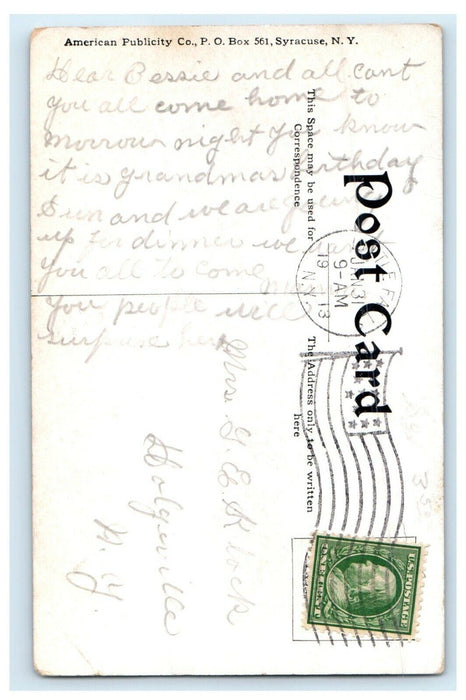 American Publicity Co., P. O. Box 561, Syracuse, N. Y.
Dear Bessie and all cant
you all come home to
morrow night you know
it is grandmas birthday
Sun and we are going
up for dinner we want
you all to come
you people will
surprise her
This Space may be used for
Correspondence
Post Card
The Address only to be written
here
JAN 31
9-AM
1913
N.Y.
Mrs G. E. Klock
Dolgeville
N. Y.
U.S. POSTAGE